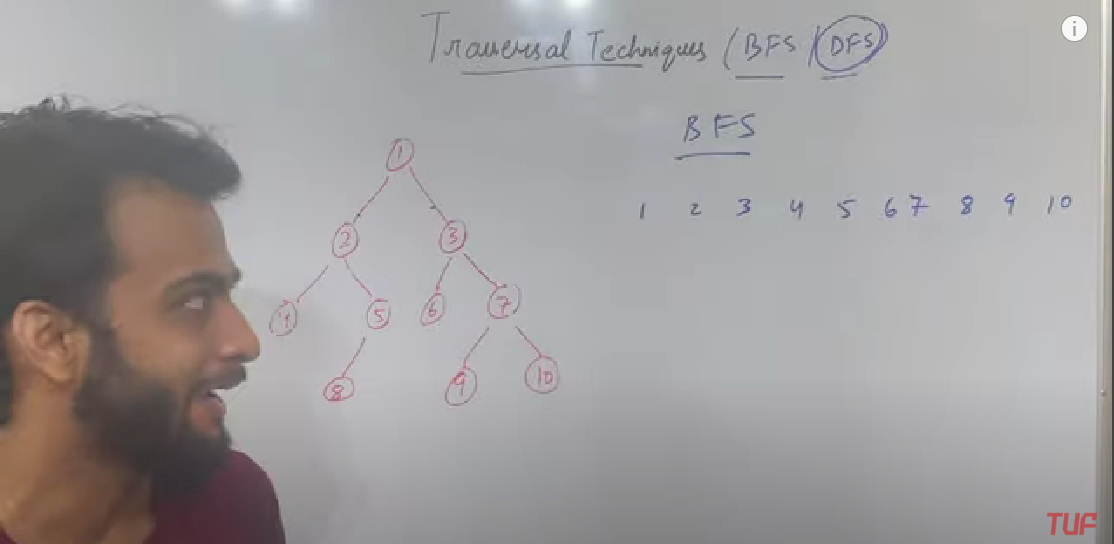 Traversal Techniques (BFS / DFS)
BFS
1 2 3 4 5 6 7 8 9 10
1
2 3
4 5 6 7
8 9 10
TUF
i